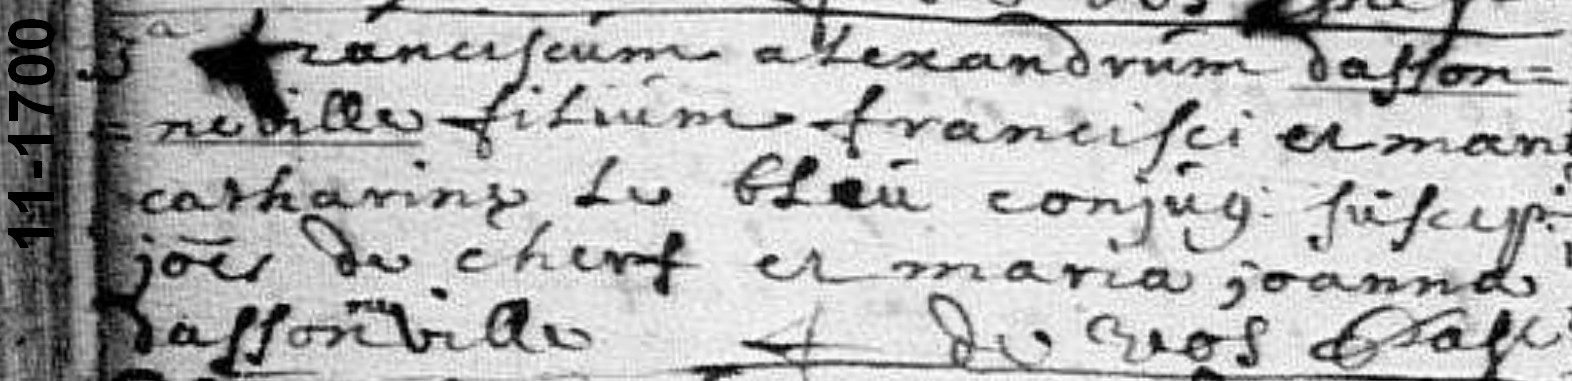 11-1700
3a franciscum alexandrum dasson=
=neville filium francisci et mari
catharinæ le bleu conjug: suscep:
joēs de cherf et maria joanna
dassonneville de vos Past